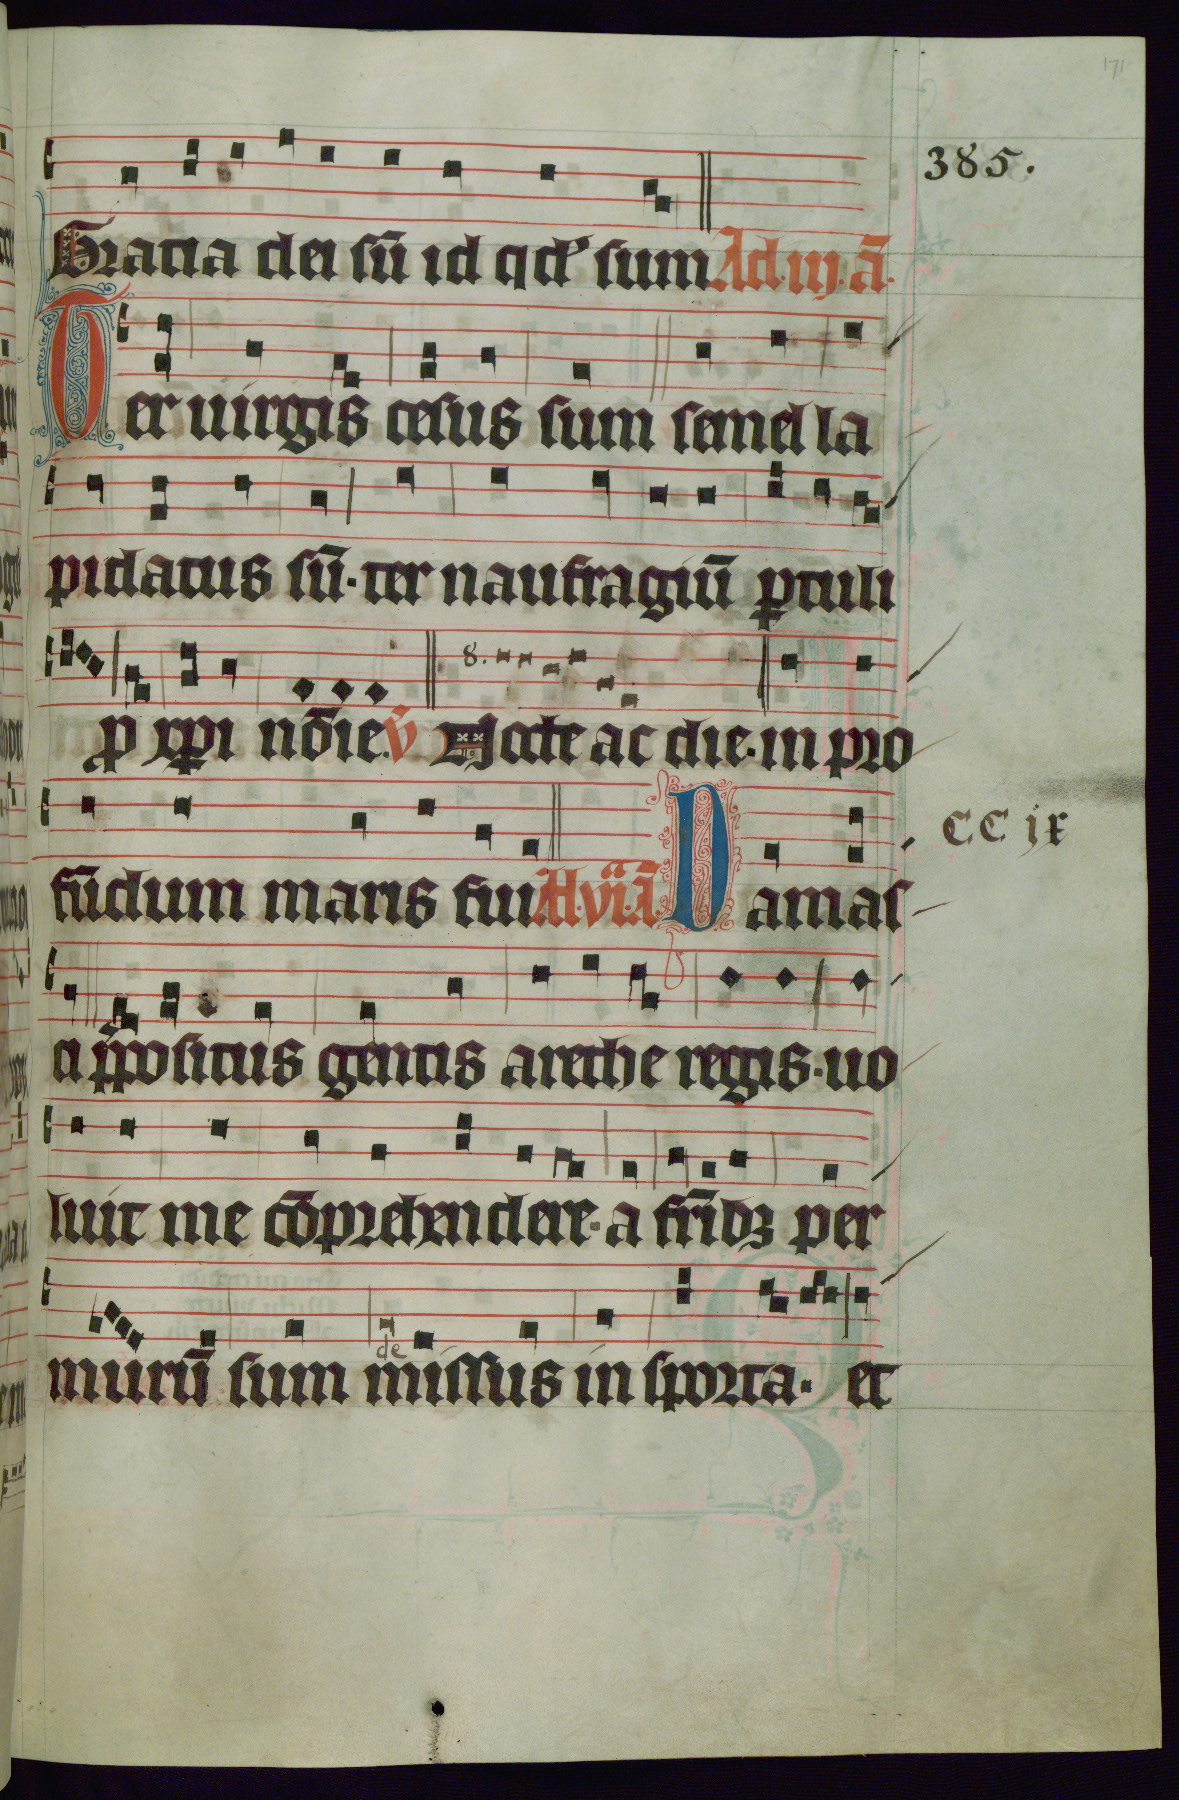 171
385.
Gratia dei sū id qd' sum Ad.iij.ā.
Ter uirgis cesus sum semel la
pidatus sū·ter naufragiū ꝑtuli
8.
ꝓ xpi nōīe. v̄ Nocte ac die·in pro
CC ix
fūdum maris fui Ad.vi.ā. Damas
ci p̄positus gentis arethe regis·uo
luit me cōprehendere·a fr̄ibꝫ per
de
murū sum missus in sporta· et